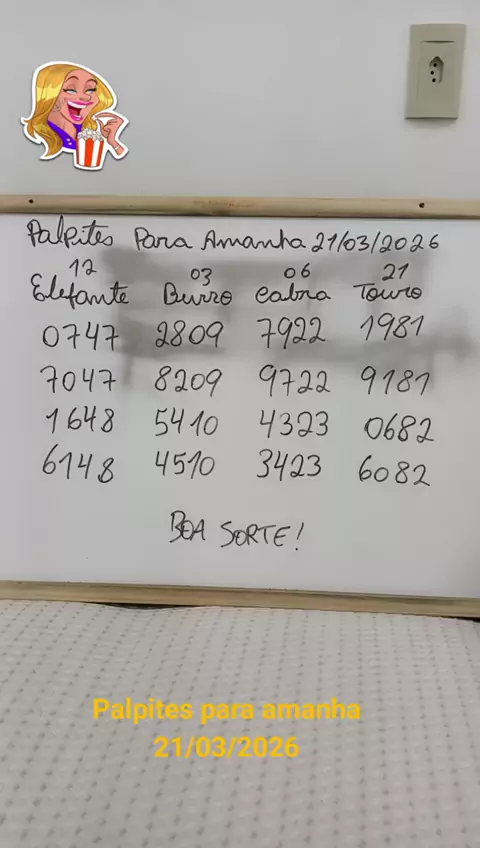 Palpites Para Amanha 21/03/2026
12 03 06 21
Elefante Burro Cabra Touro
0747 2809 7922 1981
7047 8209 9722 9181
1648 5410 4323 0682
6148 4510 3423 6082
BOA SORTE!
Palpites para amanha
21/03/2026